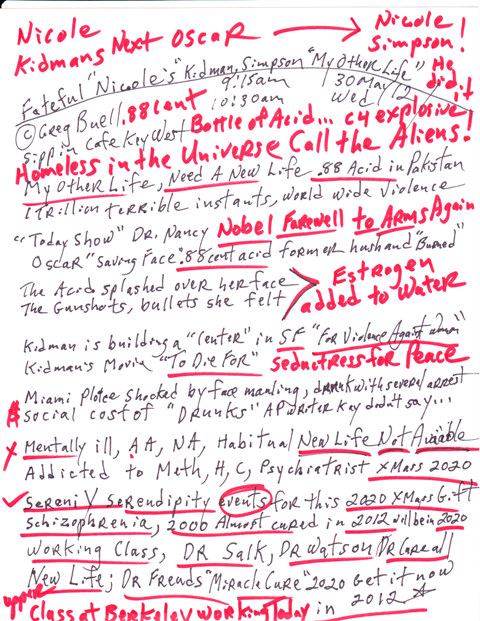 Nicole Kidmans Next Oscar → Nicole Simpson!
He did it
Fateful "Nicole's" Kidman, Simpson "My Other Life"
9:15am 30 May
© Greg Buell .88 cent 10:30am Wed 12
Sippin Cafe Key West Bottle of Acid... C4 explosive
Homeless in the Universe Call the Aliens!
My Other Life, Need A New Life .88 Acid in Pakistan
1 Trillion terrible instants, world wide violence
"Today Show" Dr. Nancy Nobel Farewell to Arms Again
Oscar "Saving Face" .88 cent acid former husband "Burned"
The Acid splashed over her face
The Gunshots, bullets she felt
> Estrogen added to Water
Kidman is building a "Center" in SF "For Violence Against women"
Kidman's Movie "To Die For" Seductress for Peace
Miami Ploice shocked by face manling, drunk with several arrest
$ social cost of "Drunks" AP writer Kay didn't say...
X Mentally ill, AA, NA, Habitual New Life Not Avaiable
Addicted to Meth, H, C, Psychiatrist XMass 2020
✓ Sereni Y Serendipity events for this 2020 XMass Gift
Schizophrenia, 2000 Almost cured in 2012 will be in 2020
Working Class, DR Salk, DR Watson, DR Cureall
New Life; DR Freuds "Miracle Cure" 2020 Get it now
in 2012 ☆
upper Class at Berkeley Working Today